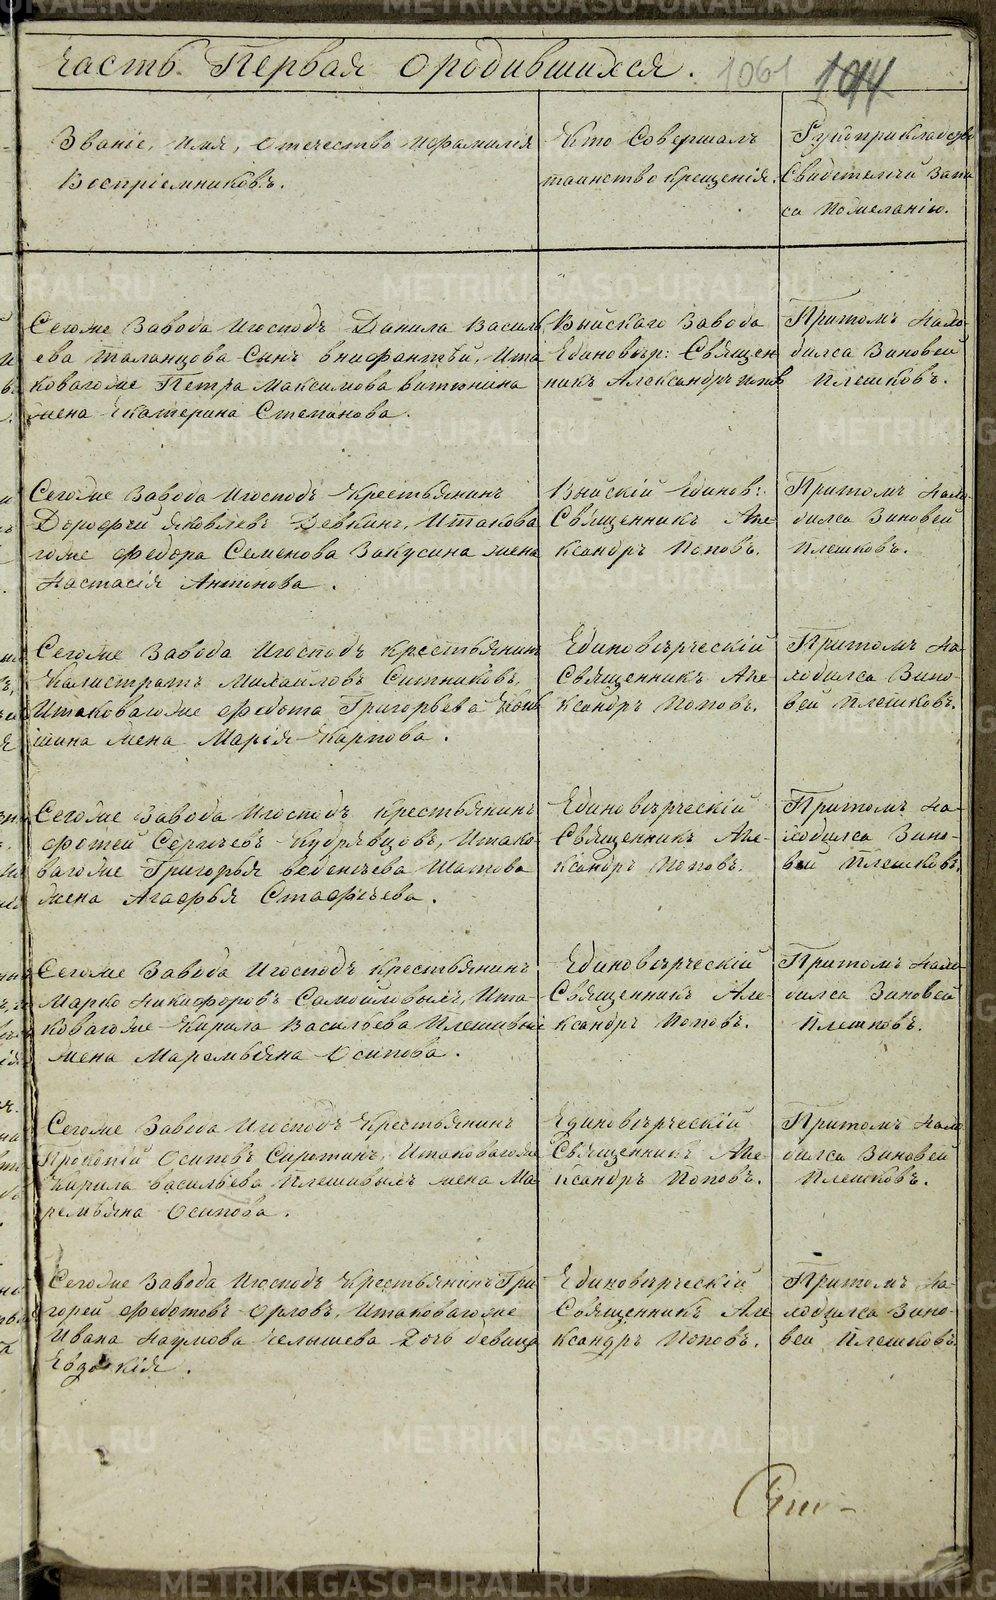 Часть Первая о родившихся. 1061 1044
Званіе, Имя, Отечество и Фамилія
Воспріемниковъ.
Кто Совершалъ
таинство крещенія.
Рукоприкладство
Свидетелей запи
си по желанію.
Сегоже Завода Игосподъ Данила Василь
ева Таланцова Сынъ Внифантій, Ита
коваго же Петра Максимова
жена Екатерина Степанова.
Выйскаго Завода
Единовѣр: Священ
никъ Александръ
Притомъ нахо-
дился Зиновей
Плешковъ.
Сегоже Завода Игосподъ Крестьянинъ
Дорофей Яковлевъ Девкинъ, Итакова
гоже Федора Семенова Закусина жена
Настасія Антонова.
Выйскій Единов:
Священникъ Але
ксандръ Поповъ.
Притомъ нахо-
дился Зиновей
Плешковъ.
Сегоже Завода Игосподъ крестьянинъ
Калистратъ Михайловъ Ситниковъ,
Итаковагоже Федота Григорьева
жена Марія Карпова.
Единовѣрческій
Священникъ Але
ксандръ Поповъ.
Притомъ на-
ходился Зино-
вей Плешковъ.
Сегоже Завода Игосподъ крестьянинъ
Фотей Сергѣевъ Кудрявцовъ, Итако-
вагоже Григорья Веденѣева Шатова
жена Агафья Стафѣева.
Единовѣрческій
Священникъ Але-
ксандръ Поповъ.
Притомъ на-
ходился Зино-
вей Плешковъ.
Сегоже Завода Игосподъ крестьянинъ
Марко Никифоровъ Самойловыхъ, Ита-
ковагоже Кирила Васильева Плешивыхъ
жена Маремьяна Осипова.
Единовѣрческій
Священникъ Але-
ксандръ Поповъ.
Притомъ нахо-
дился Зиновей
Плешковъ.
Сегоже Завода Игосподъ Крестьянинъ
Прокопій Осиповъ Сиротинъ, Итаковагоже
Кирила Васильева Плешивыхъ жена Ма
ремьяна Осипова.
Единовѣрческій
Священникъ Але-
ксандръ Поповъ.
Притомъ нахо
дился Зиновей
Плешковъ.
Сегоже Завода Игосподъ Крестьянинъ Гри
горей Федотовъ Орловъ, Итаковагоже
Ивана Наумова Челышева Дочь девица
Евдокія.
Единовѣрческій
Священникъ Але
ксандръ Поповъ.
Притомъ на-
ходился Зино-
вей Плешковъ.
METRIKI.GASO-URAL.RU